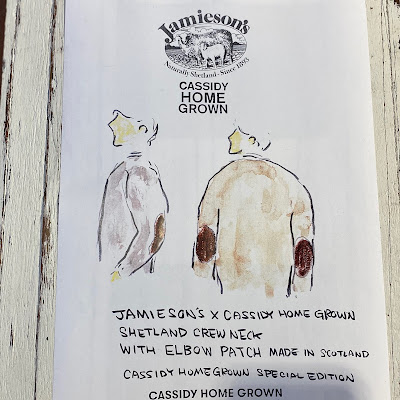 Jamieson's
Naturally Shetland - Since 1893
CASSIDY
HOME
GROWN
JAMIESON'S X CASSIDY HOME GROWN
SHETLAND CREW NECK
WITH ELBOW PATCH MADE IN SCOTLAND
CASSIDY HOME GROWN SPECIAL EDITION
CASSIDY HOME GROWN